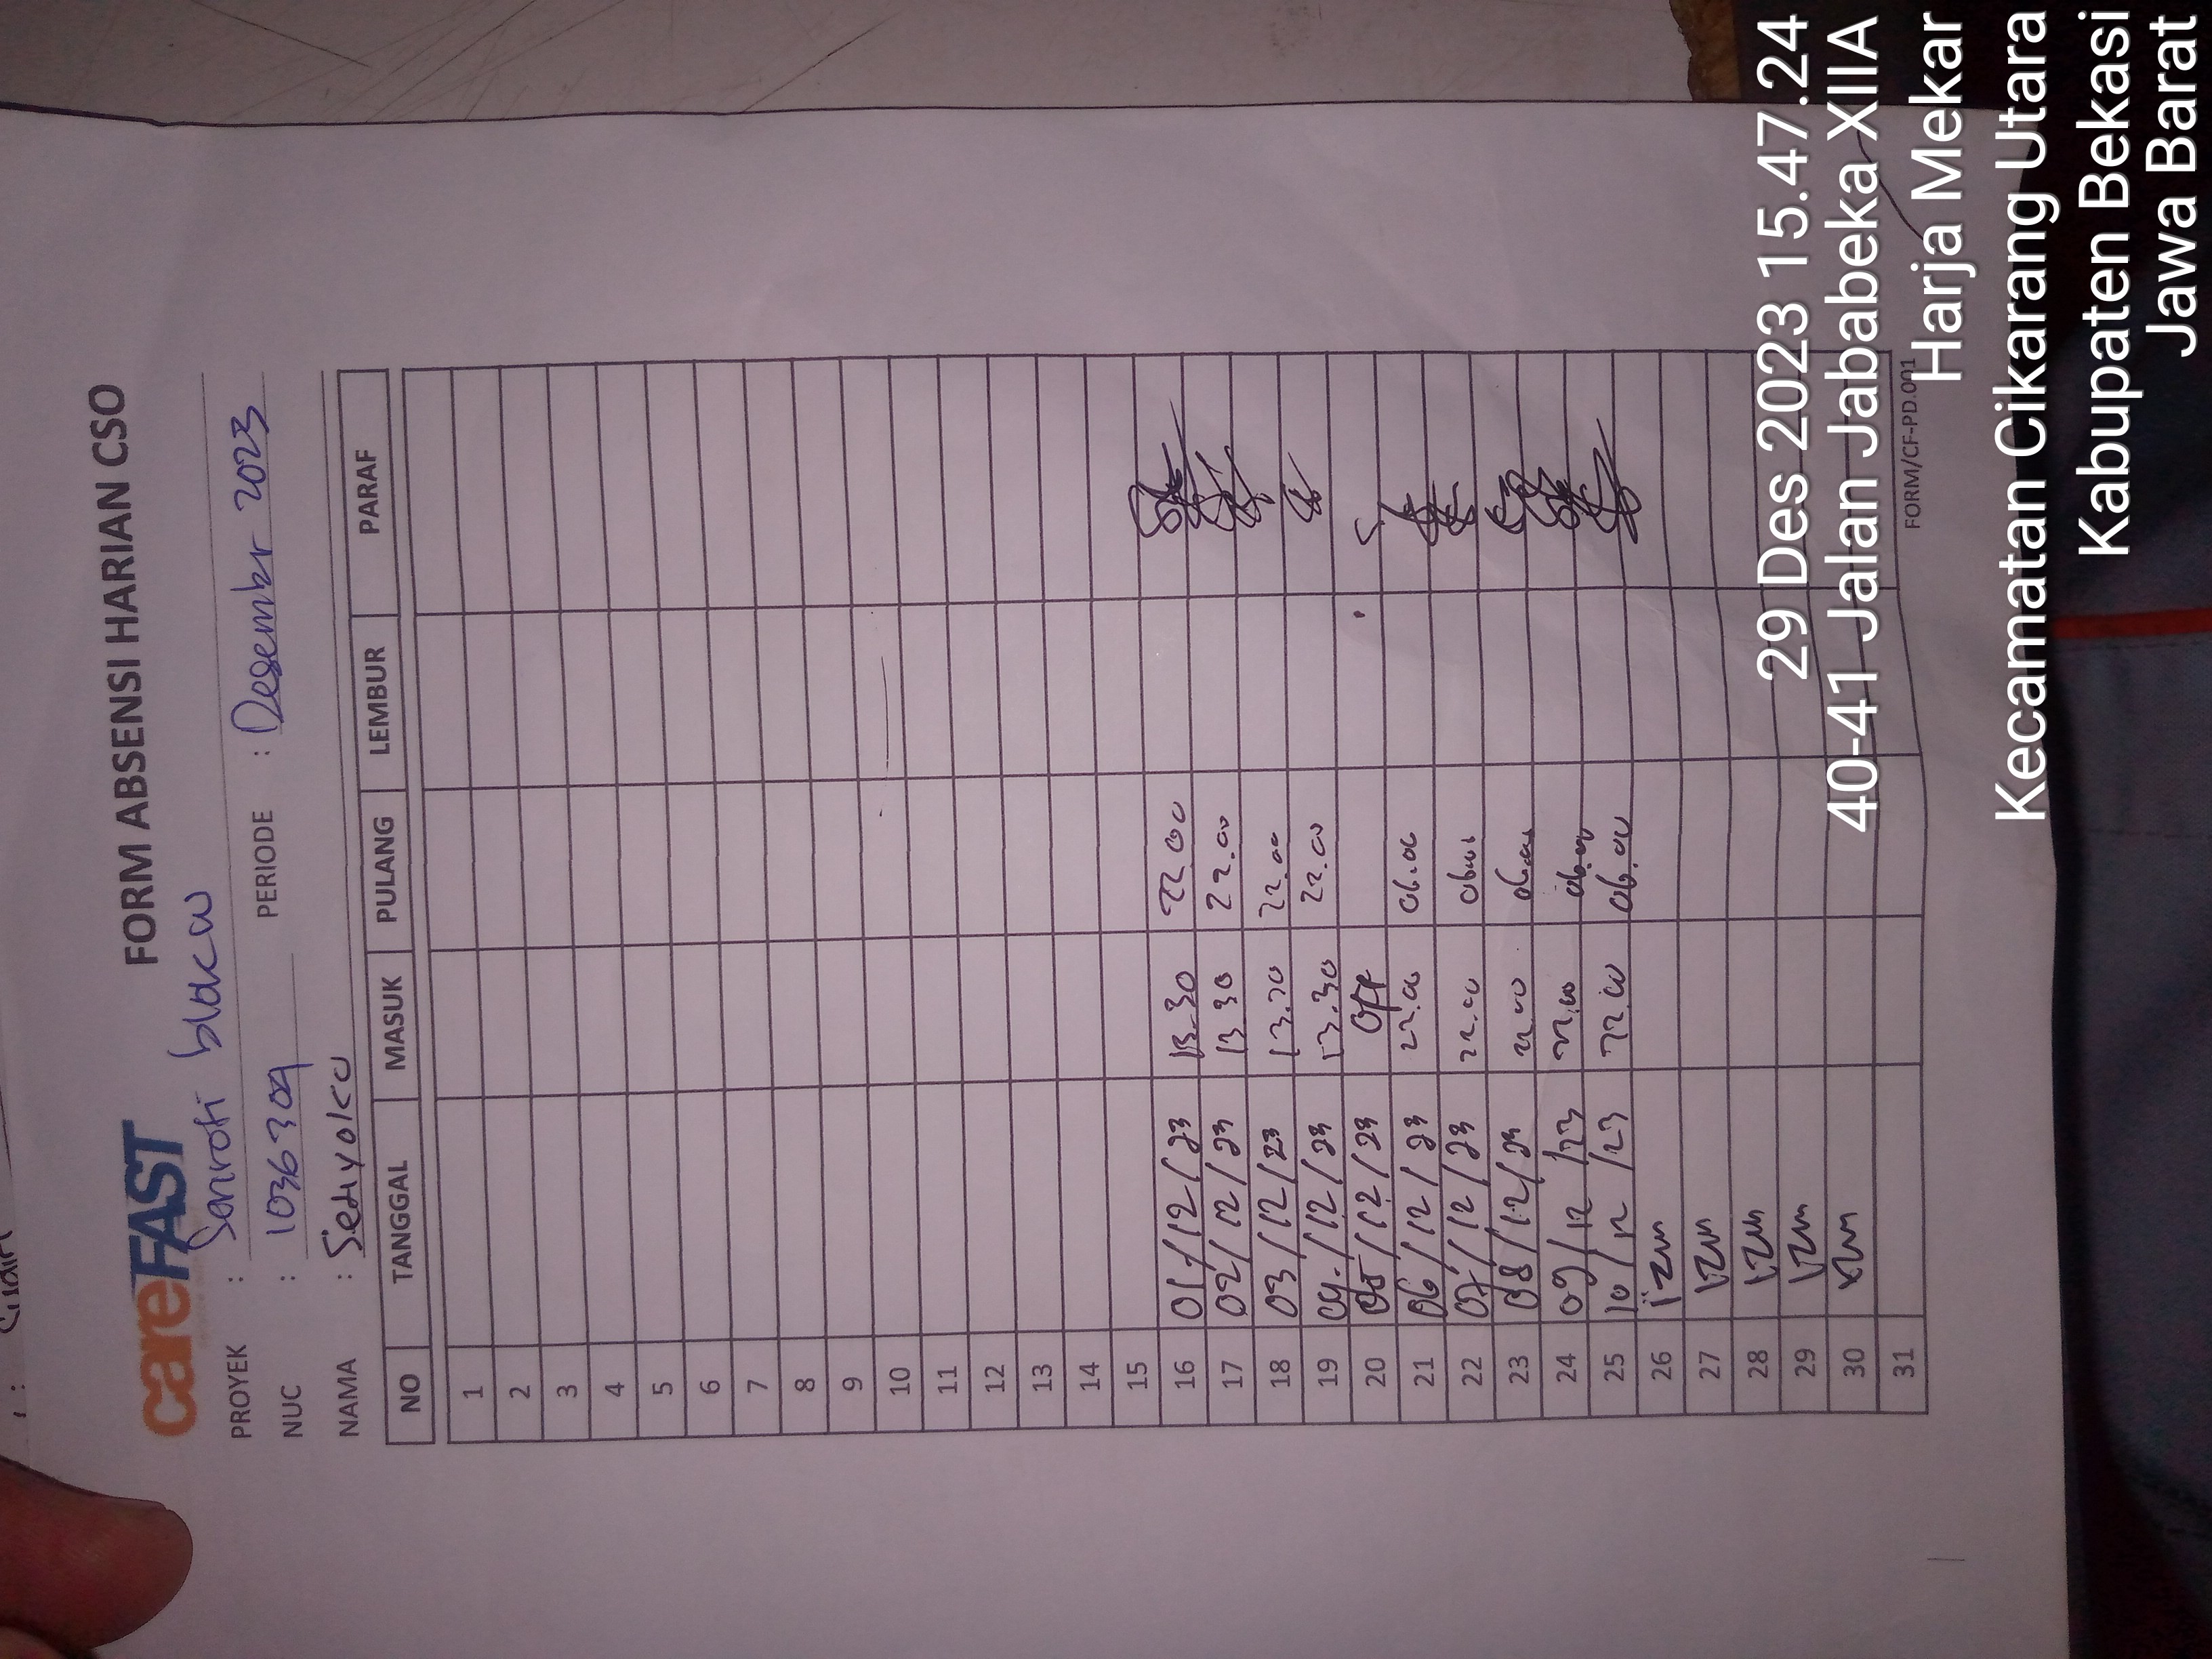 careFAST
FORM ABSENSI HARIAN CSO
PROYEK : Sariroti blacu
NUC : 1036309 PERIODE : Desember 2023
NAMA : Setiyoko
NO TANGGAL MASUK PULANG LEMBUR PARAF
1
2
3
4
5
6
7
8
9
10
11
12
13
14
15
16 01/12/23 13.30 22.00
17 02/12/23 13.30 22.00
18 03/12/23 13.30 22.00
19 04/12/23 13.30 22.00
20 05/12/23 OFF
21 06/12/23 22.00 06.00
22 07/12/23 22.00 06.00
23 08/12/23 22.00 06.00
24 09/12/23 22.00 06.00
25 10/12/23 22.00 06.00
26 izin
27 izin
28 izin
29 izin
30 izin
31
FORM/CF-PD.001
29 Des 2023 15.47.24
40-41 Jalan Jababeka XIIA
Harja Mekar
Kecamatan Cikarang Utara
Kabupaten Bekasi
Jawa Barat